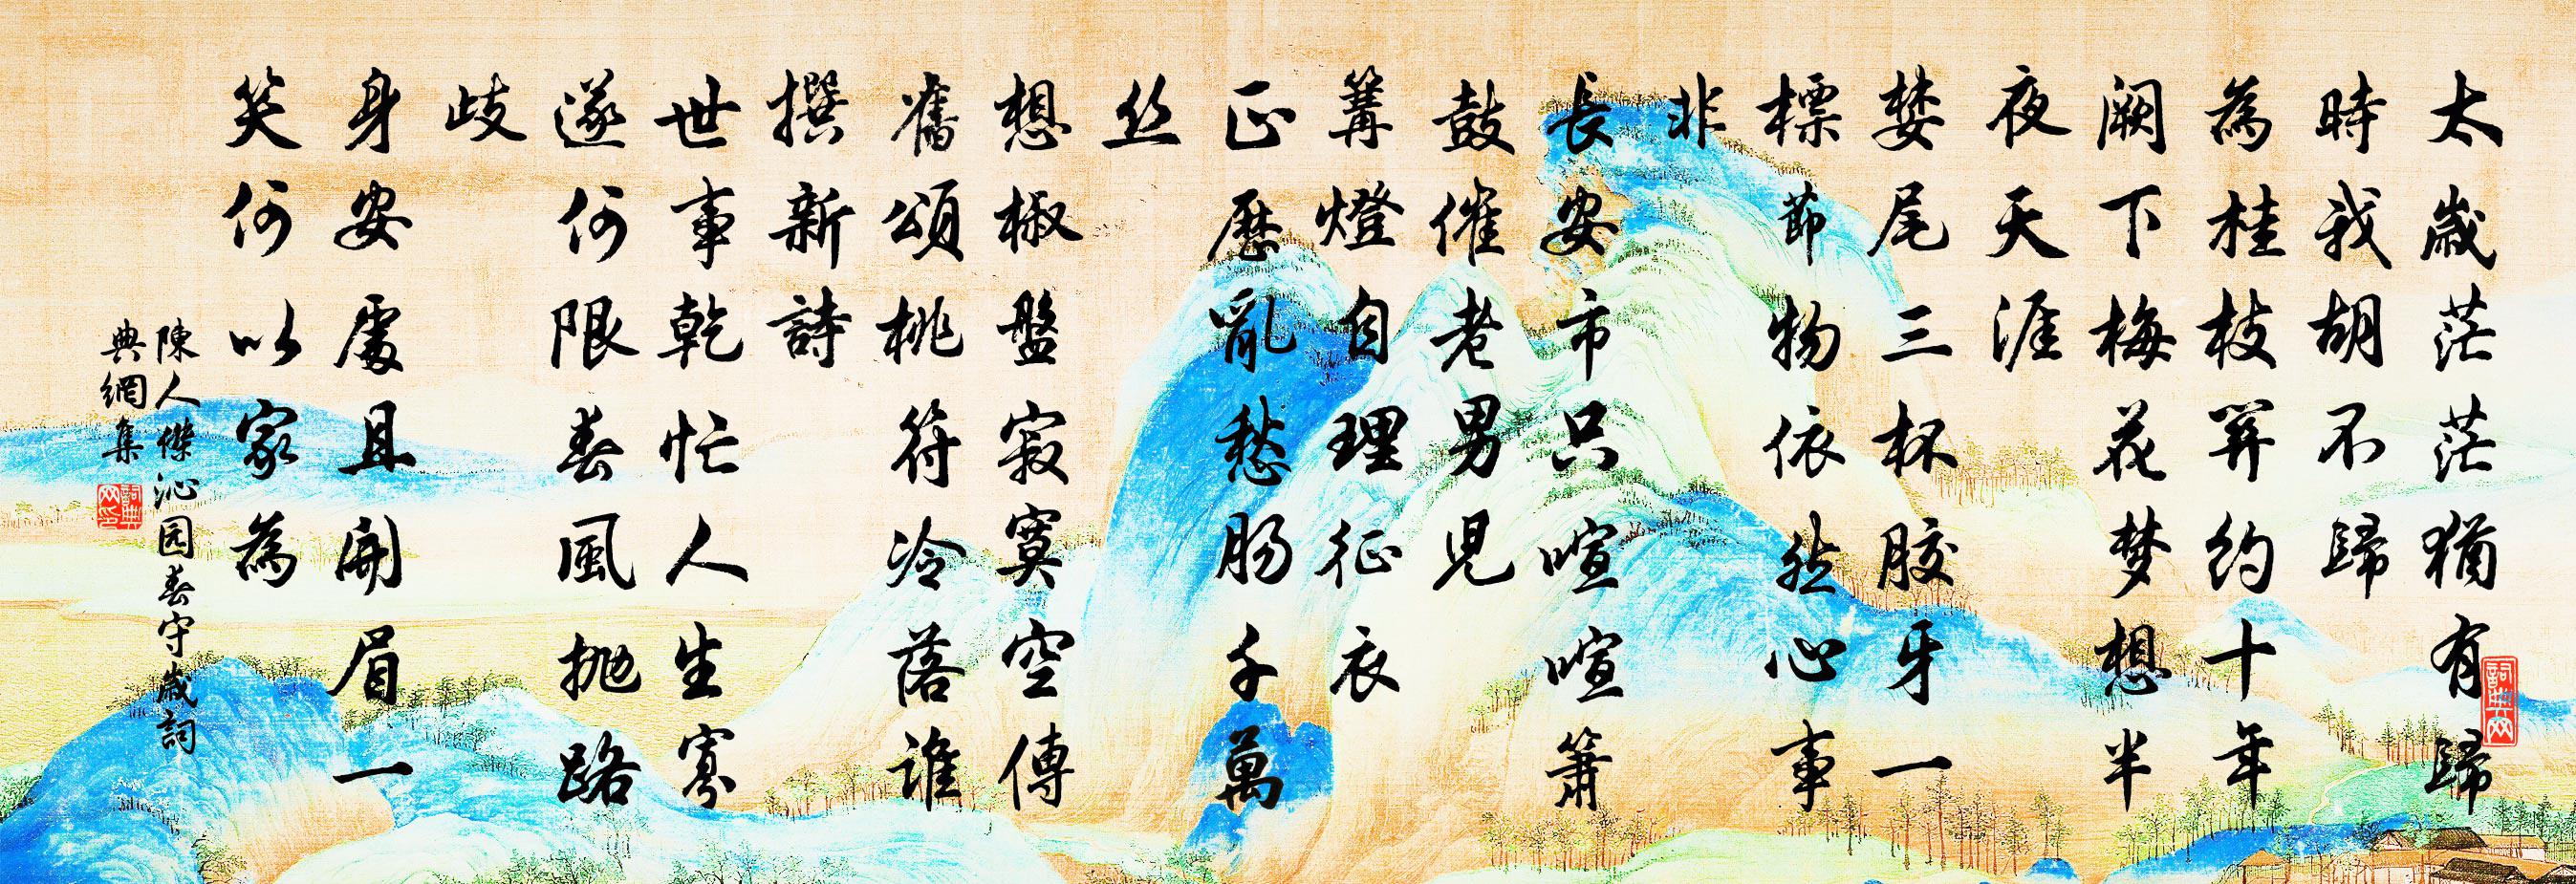 太歲茫茫猶有歸
時我胡不歸
為桂枝關約十年
阙下梅花梦想半
夜天涯
婪尾三杯胶牙一
標節物依然心事
非
長安市只喧喧箫
鼓催老男兒
篝燈自理征衣
正歷亂愁肠千萬
丝
想椒盤寂寞空傳
舊頌桃符冷落誰
撰新詩
世事乾忙人生寡
遂何限春風抛路
歧
身安處且開眉一
笑何以家為
陳人傑沁园春守歲詞
典網集
詞典网印
詞典网